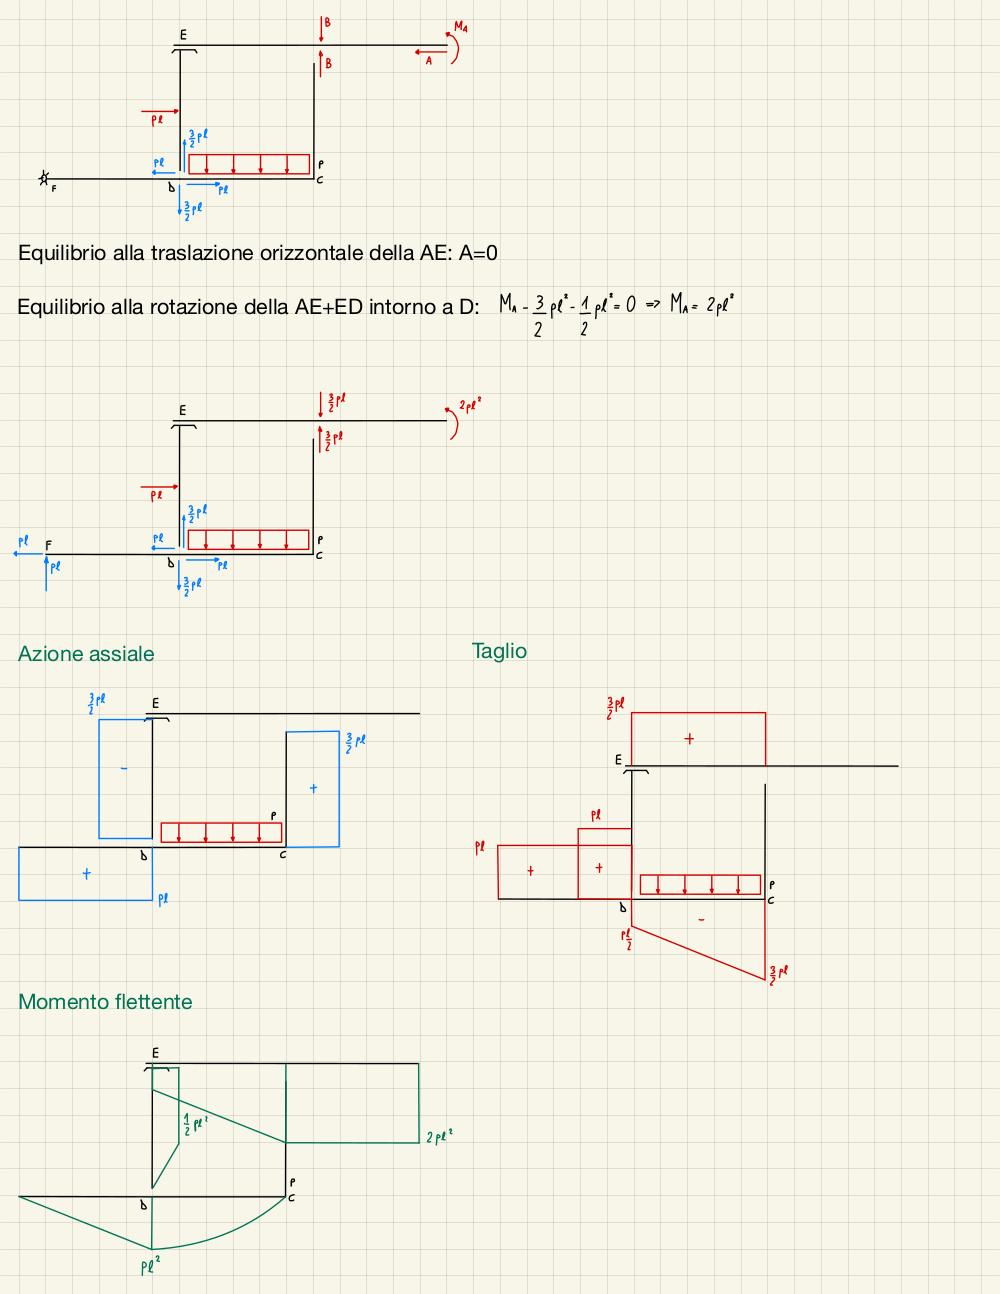 E
B
M_A
B
A
pl
3/2 pl
pl
P
C
F
D
pl
3/2 pl
Equilibrio alla traslazione orizzontale della AE: A=0
Equilibrio alla rotazione della AE+ED intorno a D: M_A - 3/2 pl² - 1/2 pl² = 0 => M_A = 2pl²
3/2 pl
E
2pl²
3/2 pl
pl
3/2 pl
pl
F
pl
P
C
pl
D
pl
3/2 pl
Azione assiale
Taglio
3/2 pl
E
3/2 pl
-
+
P
D
C
+
pl
3/2 pl
+
E
pl
pl
+
+
P
C
D
-
pl/2
3/2 pl
Momento flettente
E
1/2 pl²
2pl²
P
C
D
pl²